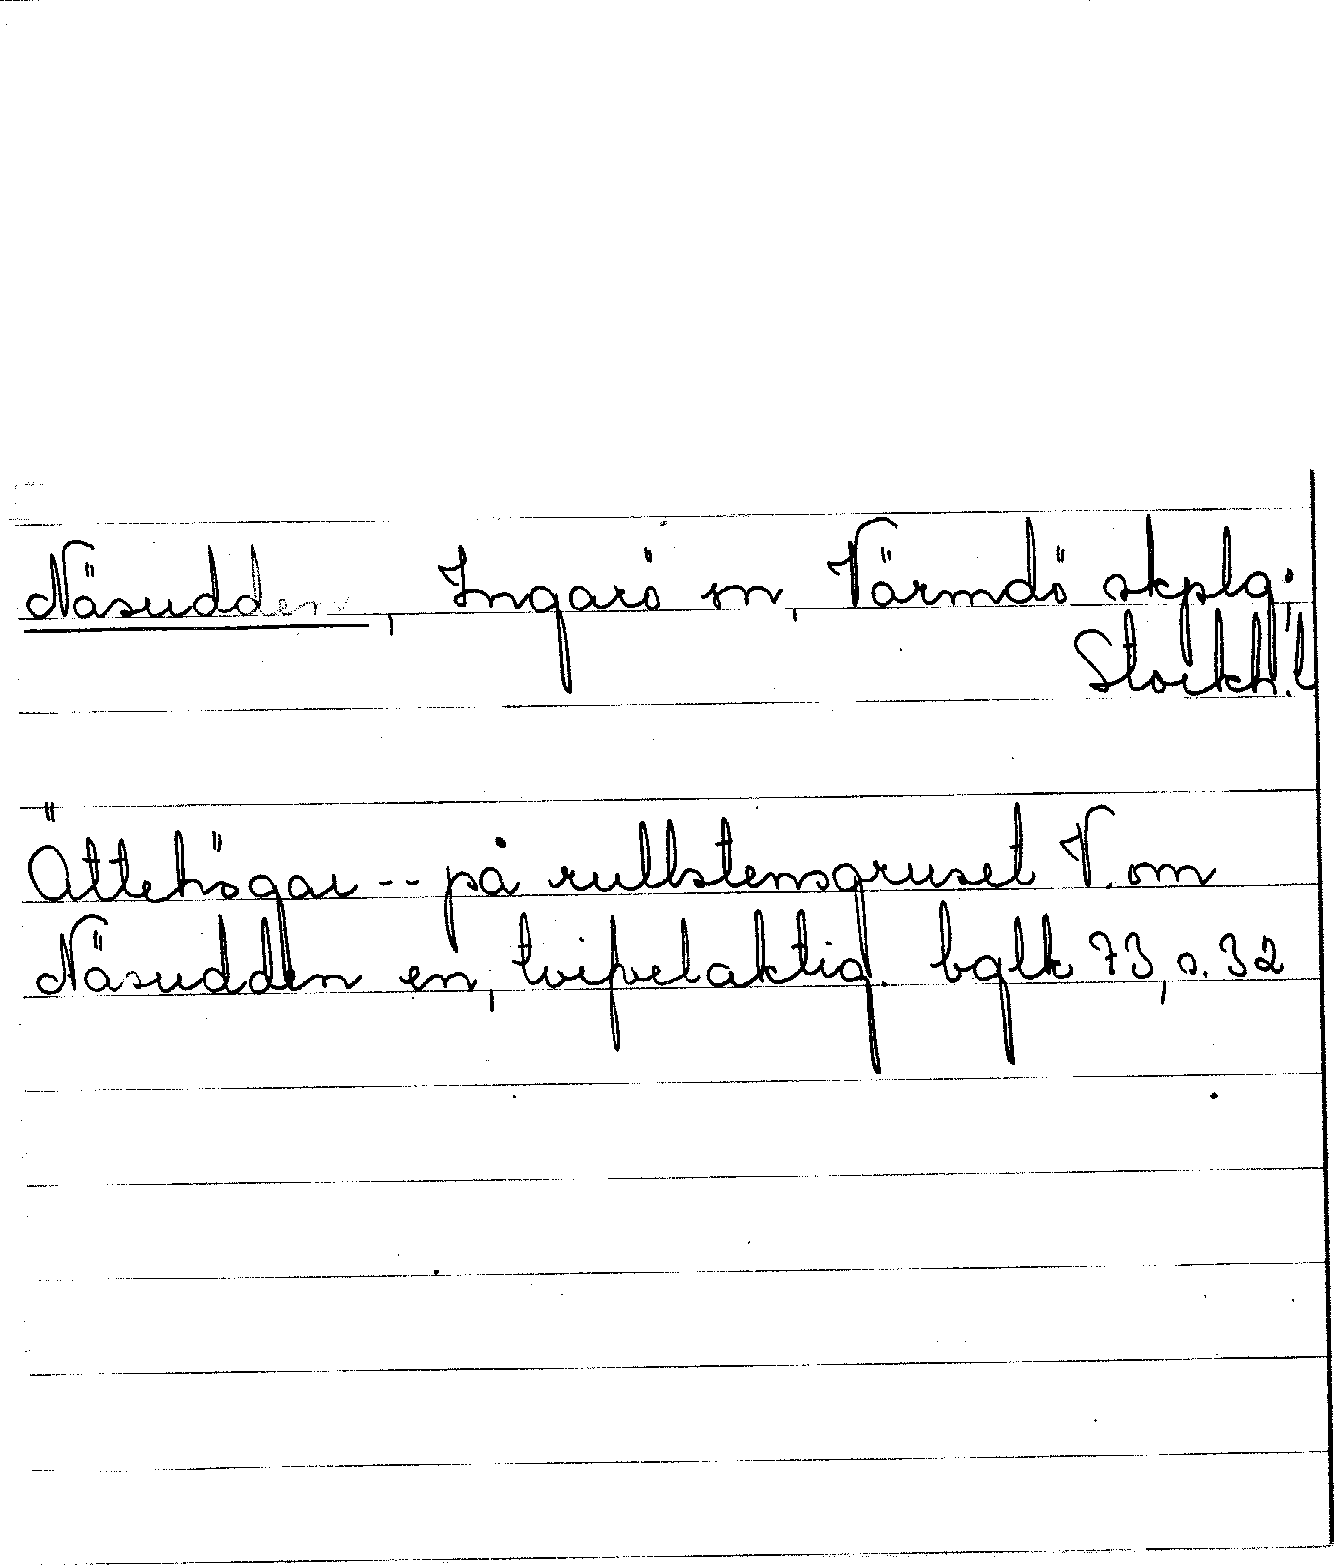 Näsudden, Ingarö sn, Värmdö skplg;
Stockh. l
Ättehögar -- på rullstensgruset V. om
Näsudden en, tvifvelaktig. bglk 73, s. 32